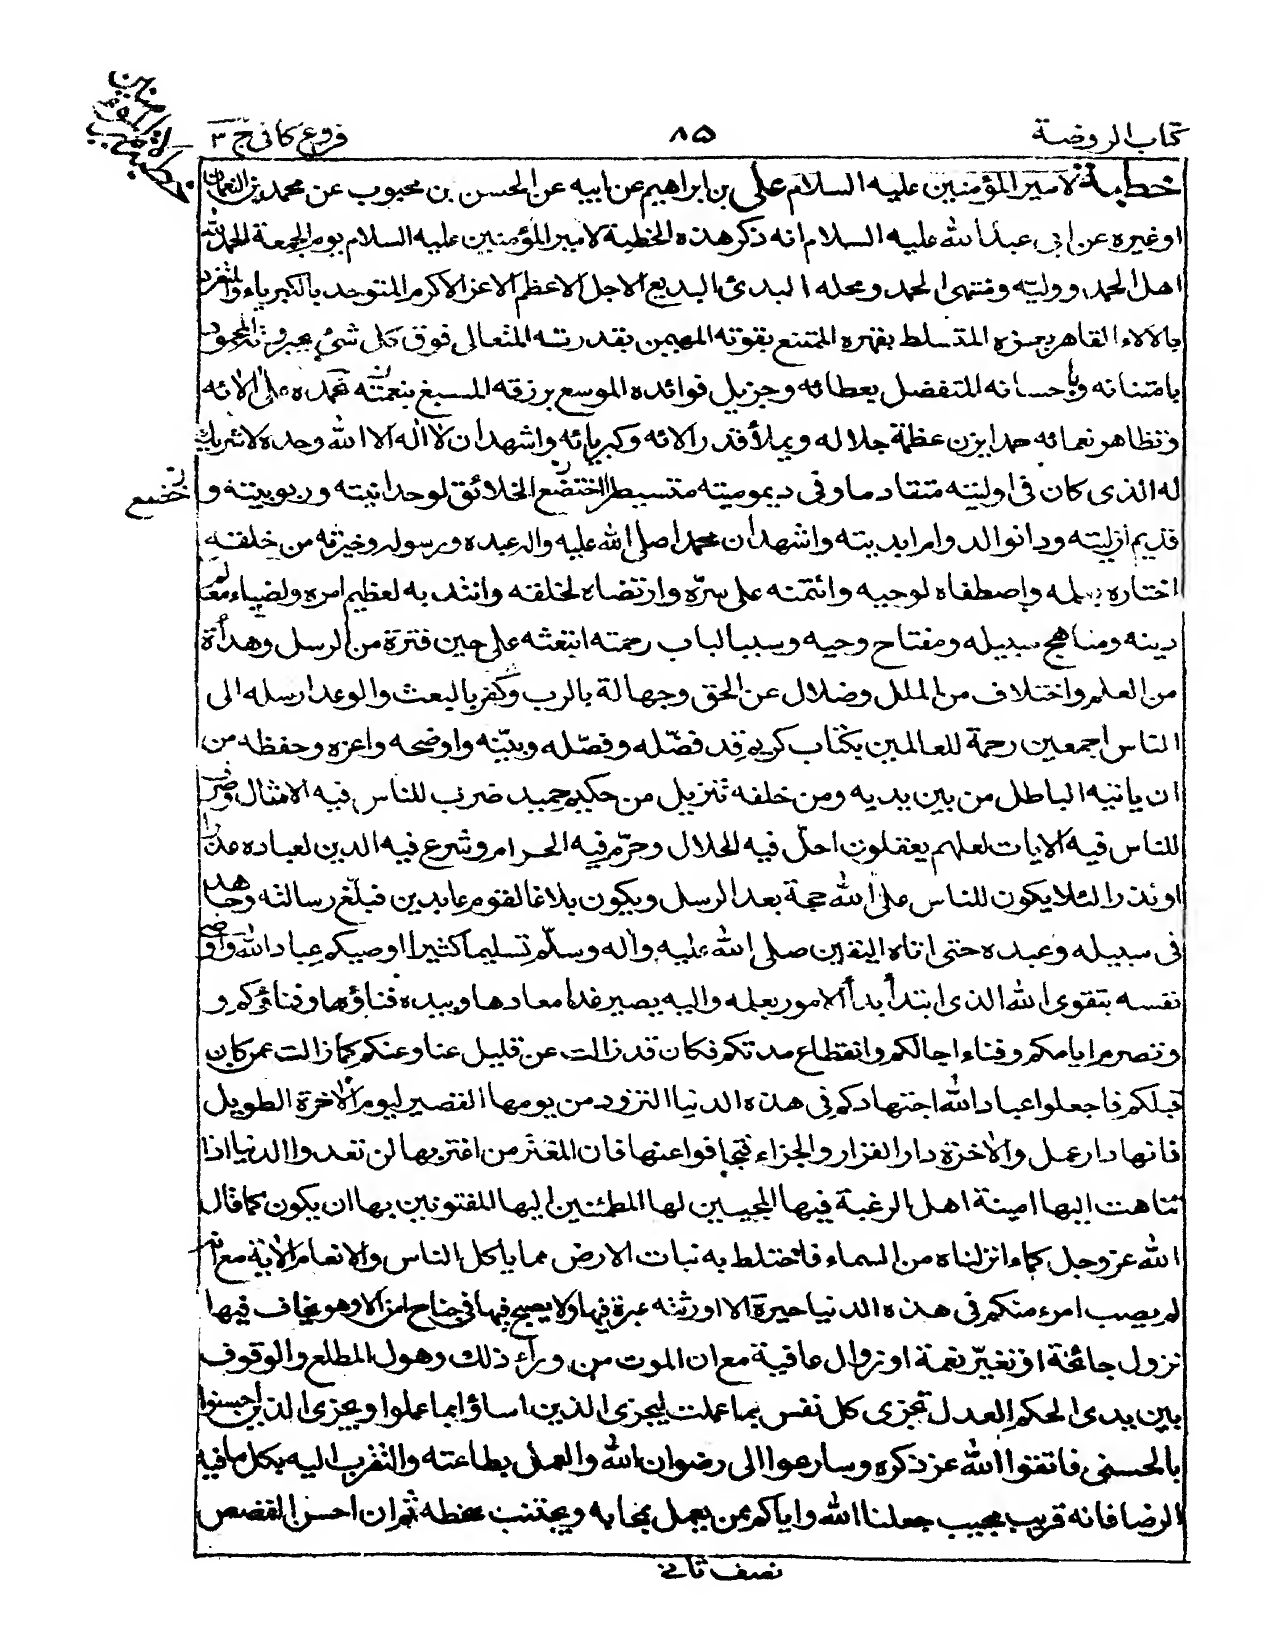 كتاب الروضة
٨٥
فروع كافى ج ٣
خطبة لامير المؤمنين عليه السلام على بن ابراهيم عن ابيه عن الحسن بن محبوب عن محمد بن النعمان
او غيره عن ابى عبد الله عليه السلام انه ذكر هذه الخطبة لامير المؤمنين عليه السلام يوم الجمعة الحمد لله
اهل الحمد ووليه ومنتهى الحمد ومحله البدئ البديع الاجل الاعظم الاعز الاكرم المتوحد بالكبرياء والمتفرد
بالالاء القاهر بعزه المتسلط بقهره الممتنع بقوته المهيمن بقدرته المتعالى فوق كل شئ بجبروته المحمود
بامتنانه وباحسانه المتفضل بعطائه وجزيل فوائده الموسع برزقه المسبغ بنعمته نحمده على الائه
وتظاهر نعمائه حمدا يزن عظمة جلاله ويملأ قدر الائه وكبريائه واشهد ان لا اله الا الله وحده لا شريك
له الذى كان فى اوليته متقادما وفى ديموميته متسيطرا خضع الخلائق لوحدانيته وربوبيته و
خضع
قديم ازليته ودانوا لدوام ابديته واشهد ان محمدا صلى الله عليه واله عبده ورسوله وخيرته من خلقه
اختاره بعلمه واصطفاه لوحيه وائتمنه على سره وارتضاه لخلقه وانتدبه لعظيم امره ولضياء معالم
دينه ومناهج سبيله ومفتاح وحيه وسببا لباب رحمته ابتعثه على حين فترة من الرسل وهدأة
من العلم واختلاف من الملل وضلال عن الحق وجهالة بالرب وكفر بالبعث والوعد ارسله الى
الناس اجمعين رحمة للعالمين بكتاب كريم قد فضله وفصله وبينه واوضحه واعزه وحفظه من
ان ياتيه الباطل من بين يديه ومن خلفه تنزيل من حكيم حميد ضرب للناس فيه الامثال وصرف
للناس فيه الايات لعلهم يعقلون احل فيه الحلال وحرم فيه الحرام وشرع فيه الدين لعباده عذرا
او نذرا لئلا يكون للناس على الله حجة بعد الرسل ويكون بلاغا لقوم عابدين فبلغ رسالته وجاهد
فى سبيله وعبده حتى اتاه اليقين صلى الله عليه واله وسلم تسليما كثيرا اوصيكم عباد الله واوصى
نفسه بتقوى الله الذى ابتدأ بدأ الامور بعلمه واليه يصير غدا معادها وبيده فناؤها وفناؤكم و
وتصرم ايامكم وفناء اجالكم وانقطاع مدتكم فكان قد زالت عن قليل عنا وعنكم كما زالت عمن كان
قبلكم فاجعلوا عباد الله اجتهادكم فى هذه الدنيا التزود من يومها القصير ليوم الاخرة الطويل
فانها دار عمل والاخرة دار القرار والجزاء فتجافوا عنها فان المغتر من اغتر بها لن تعدوا الدنيا اذا
تناهت اليها امنية اهل الرغبة فيها المحبين لها المطمئنين اليها المفتونين بها ان يكون كما قال
الله عز وجل كماء انزلناه من السماء فاختلط به نبات الارض مما ياكل الناس والانعام الاية مع انه
لم يصب امرء منكم فى هذه الدنيا حبرة الا اورثته عبرة فيها ولا يصبح فيها فى جناح امن الا وهو يخاف فيها
نزول جائحة او تغير نعمة او زوال عافية مع ان الموت من وراء ذلك وهول المطلع والوقوف
بين يدى الحكم العدل تجزى كل نفس بما عملت ليجزى الذين اساؤا بما عملوا ويجزى الذين احسنوا
بالحسنى فاتقوا الله عز ذكره وسارعوا الى رضوان الله والعمل بطاعته والتقرب اليه بكل ما فيه
الرضا فانه قريب مجيب جعلنا الله واياكم ممن يعمل بمحابه ويجتنب سخطه ثم ان احسن القصص
نصف ثانى